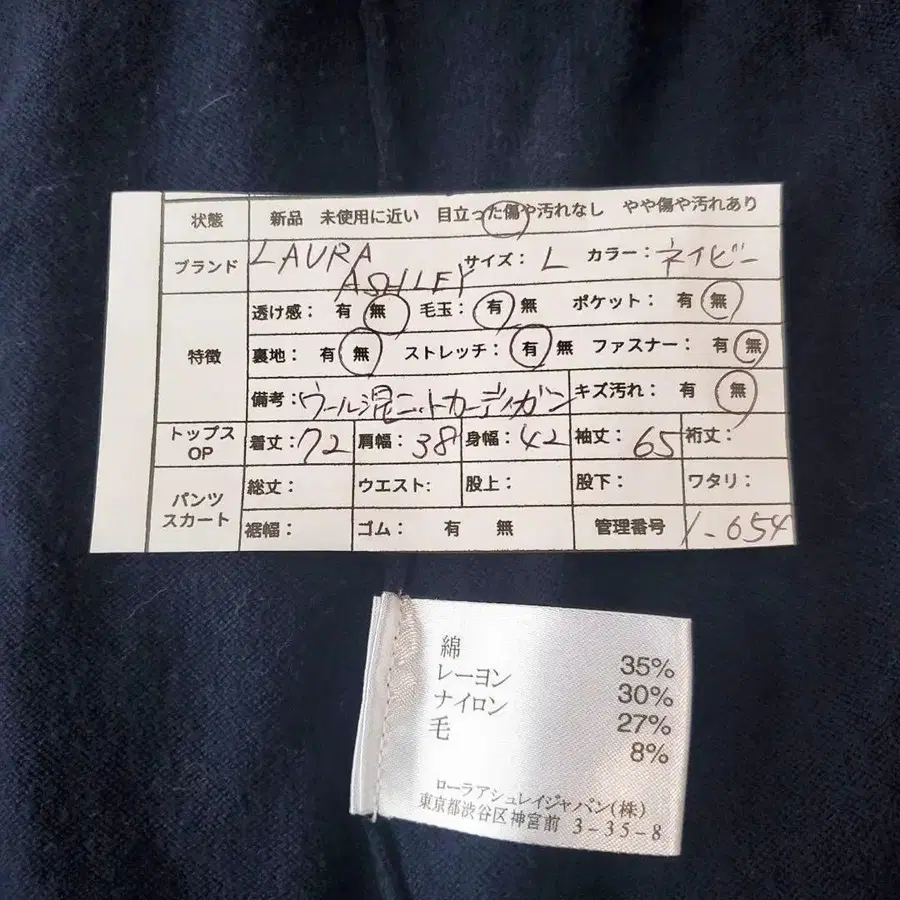 状態 新品 未使用に近い 目立った傷や汚れなし やや傷や汚れあり
ブランド LAURA ASHLEY サイズ: L カラー: ネイビー
特徴 透け感: 有 無 毛玉: 有 無 ポケット: 有 無
裏地: 有 無 ストレッチ: 有 無 ファスナー: 有 無
備考: ウール混ニットカーディガン キズ汚れ: 有 無
トップス OP 着丈: 72 肩幅: 38 身幅: 42 袖丈: 65 裄丈:
パンツ スカート 総丈: ウエスト: 股上: 股下: ワタリ:
裾幅: ゴム: 有 無 管理番号 1-654
綿 35%
レーヨン 30%
ナイロン 27%
毛 8%
ローラアシュレイジャパン(株)
東京都渋谷区神宮前 3-35-8